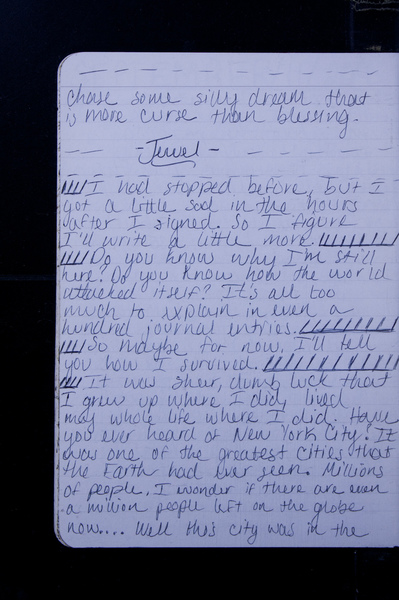 chase some silly dream that
is more curse than blessing.
-Jewel-
I had stopped before, but I
got a little sad in the hours
after I signed. So I figure
I'll write a little more.
Do you know why I'm still
here? Do you know how the world
attacked itself? It's all too
much to explain in even a
hundred journal entries.
So maybe for now, I'll tell
you how I survived.
It was sheer, dumb luck that
I grew up where I did, lived
my whole life where I did. Have
you ever heard of New York City? It
was one of the greatest cities that
the Earth had ever seen. Millions
of people. I wonder if there are even
a million people left on the globe
now.... Well this city was in the